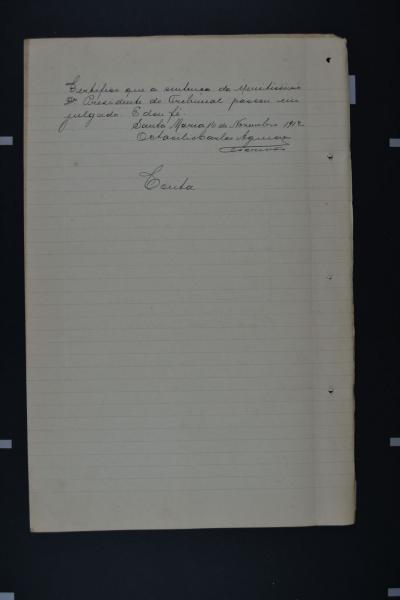 Certifico que a sentença do Meretissimo
Dr Presidente do Tribunal passou em
julgado. E dou fé.
Santa Maria 16 de Novembro 1912
Octacilio Carlos Aguiar
escrivão
Conta